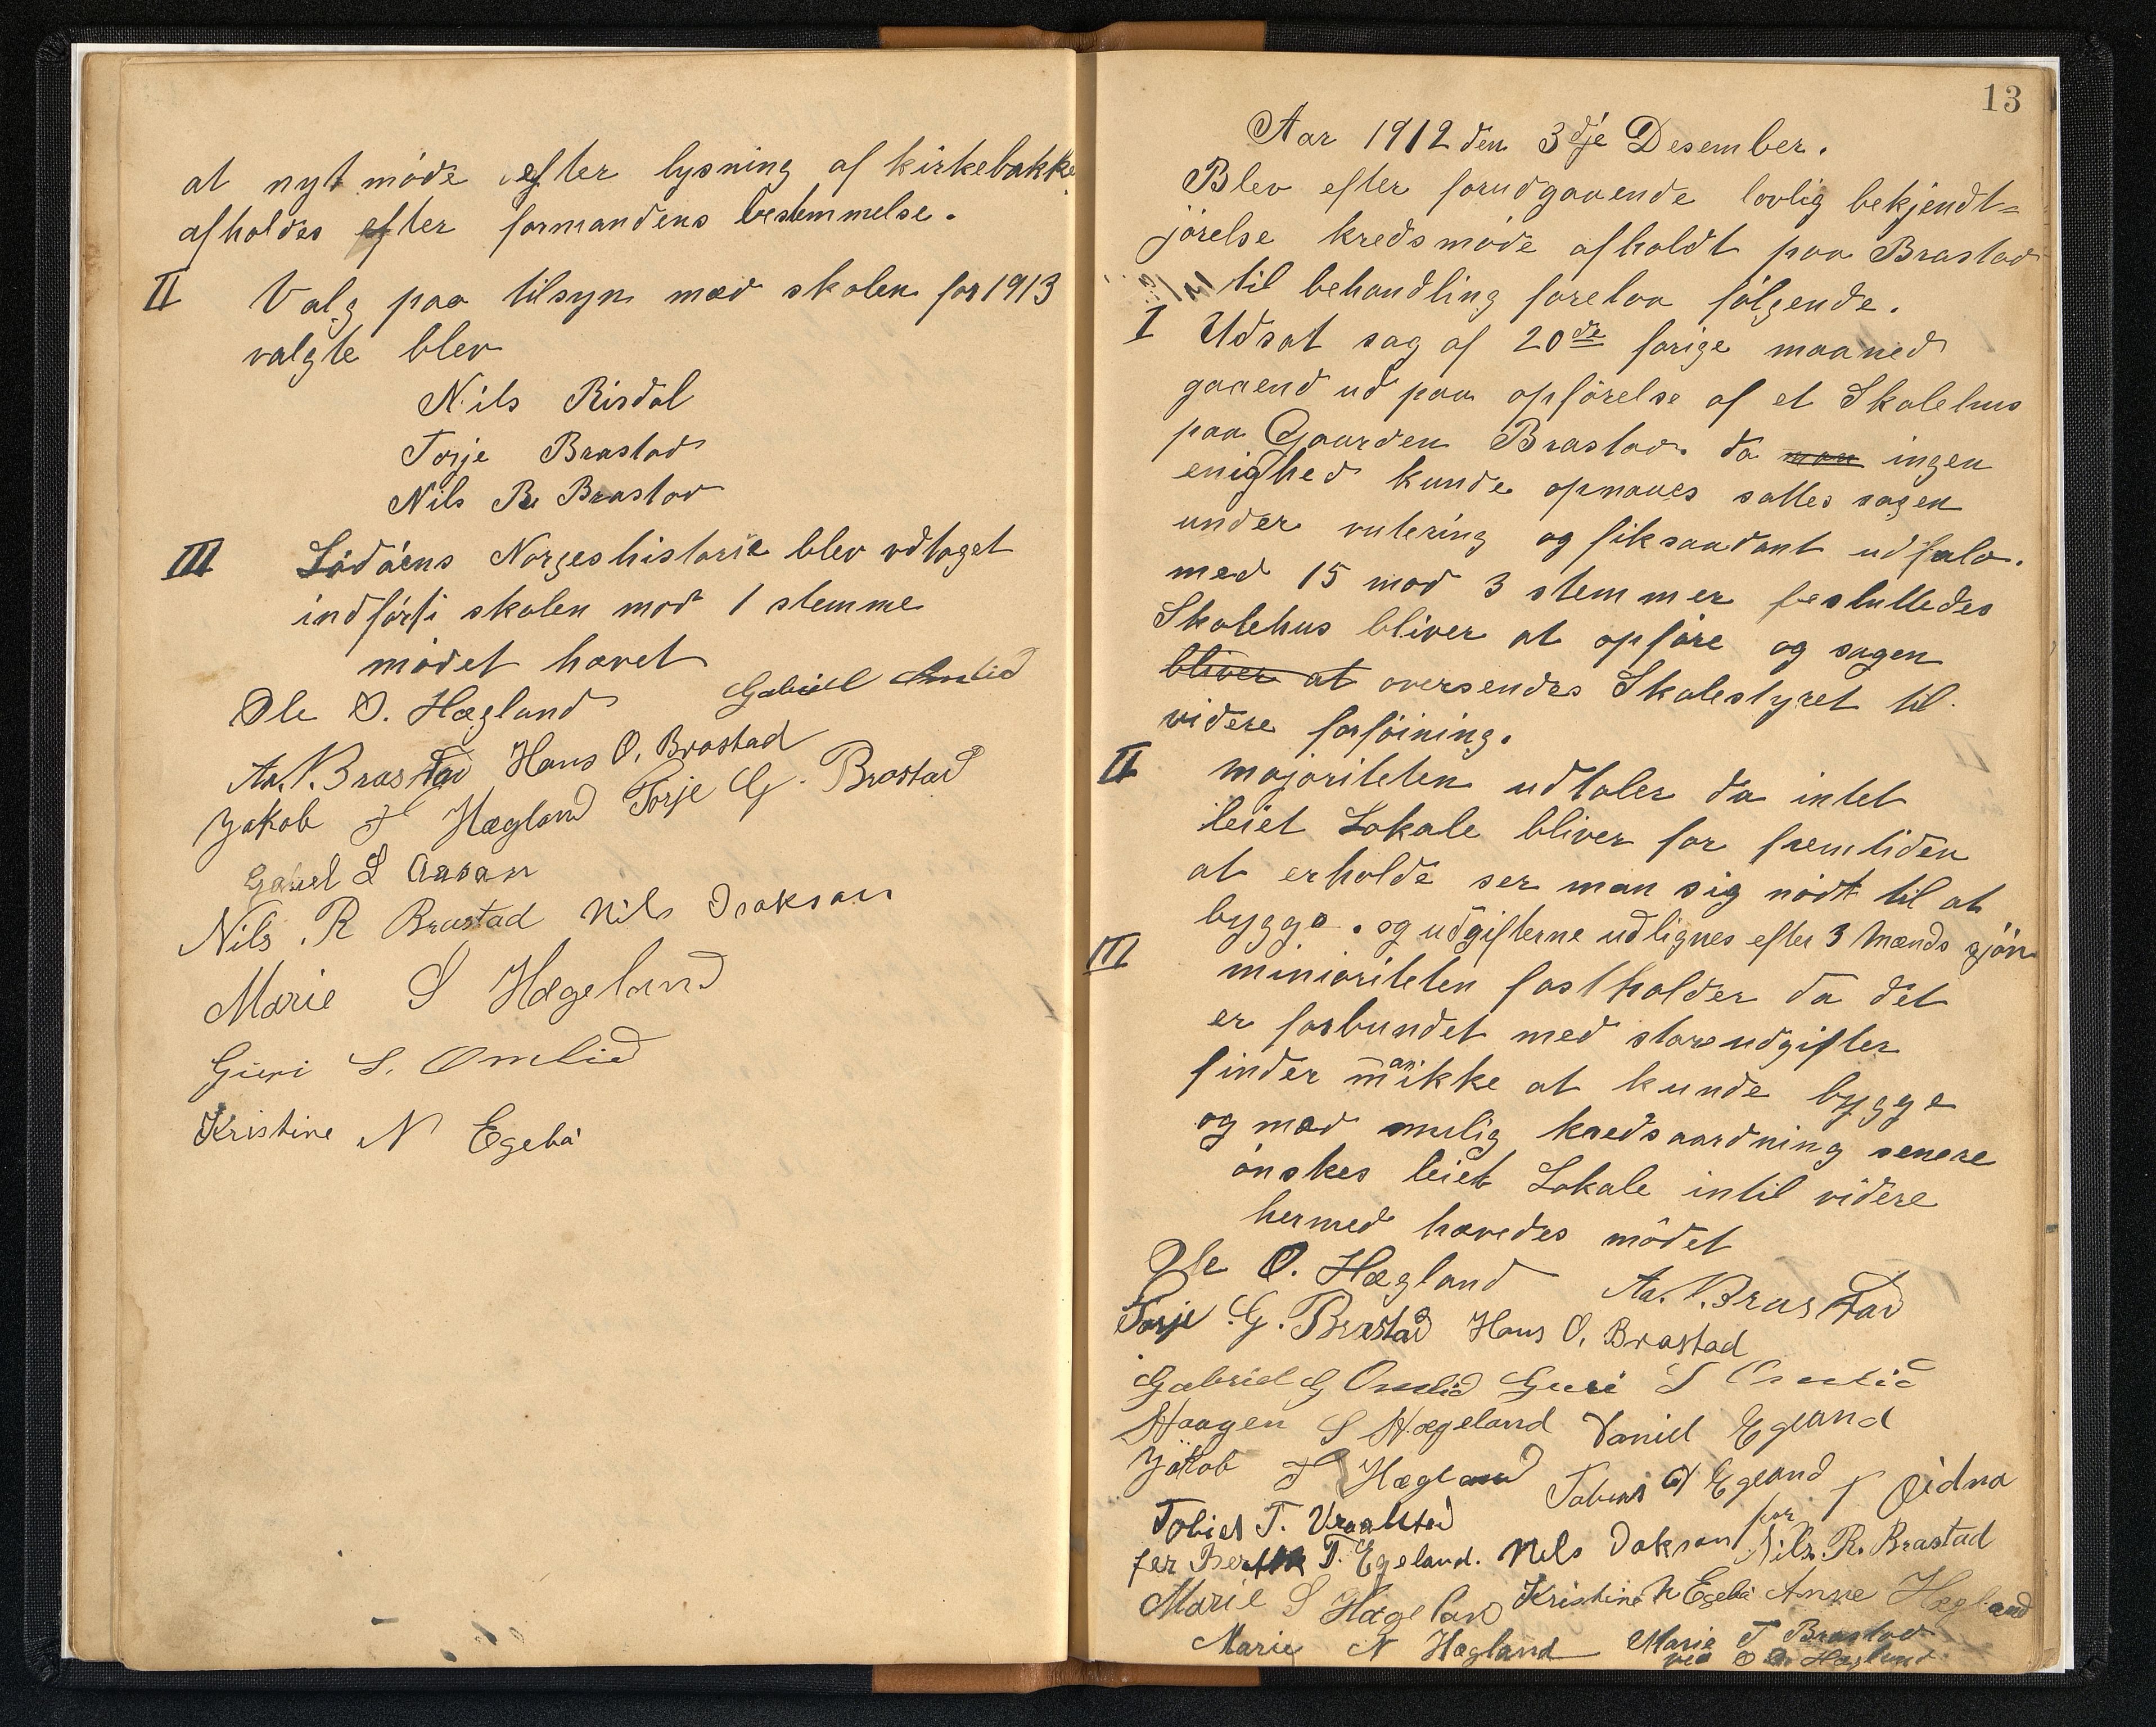 at nyt möde efter lysning af kirkebakke
afholdes efter formandens bestemmelse.
II Valg paa tilsyn med skolen for 1913
valgte blev
Nils Risdal
Torje Brastad
Nils R. Brastad
III Lödöens Norgeshistorie blev vdtaget
indført i skolen mod 1 stemme
mödet hævet
Ole O. Hægland Gabriel Omlid
Aa. N. Brastad Hans O. Brastad
Jakob T Hægland Torje G. Brastad
Gabriel L Aasan
Nils. R Brastad Nils Isakson
Marie S Hægeland
Guri S. Omlid
Kristine N Egelå
13
Aar 1912 den 3dje Desember.
Blev efter forudgaaende lovlig bekjendt=
jörelse kredsmöde afholdt paa Brastad
til behandling forelaa fölgende.
I Udsat sag af 20de forige maaned
gaaend ud paa opförelse af et Skolehus
paa Gaarden Brastad. da man ingen
enighed kunde opnaaes sattes sagen
under vutering og fik saadant udfald.
med 15 mod 3 stemmer besluttedes
Skolehus bliver at opföre og sagen
bliver at oversendes Skolestyret til
videre forföining.
II majoriteten udtaler da intet
leiet Lokale bliver for fremtiden
at erholde ser man sig nödt til at
bygge. og udgifterne udlignes efter 3 Mænds sjön
III minioriteten fastholder da det
er forbundet med store udgifter
finder man ikke at kunde bygge
og med mulig kredsaardning senere
önskes leiet Lokale intil videre
hermed hævedes mödet
Ole O. Hægland Aa. N. Brastad
Torje G. Brastad Hans O. Brastad
Gabriel G Omlid Guri S Omlid
Haagen S Hægeland Daniel Egeland
Jakob T Hægland Tobias Egeland
Tobias T. Vraalstad for T Eidna
for Berthe T. Egeland. Nils Isakson Nils. R. Brastad
Marie S Hægeland Kristine N Egelå Anne Hægland
Marie N Hægland Marie T Brastad
ved O O Hægland